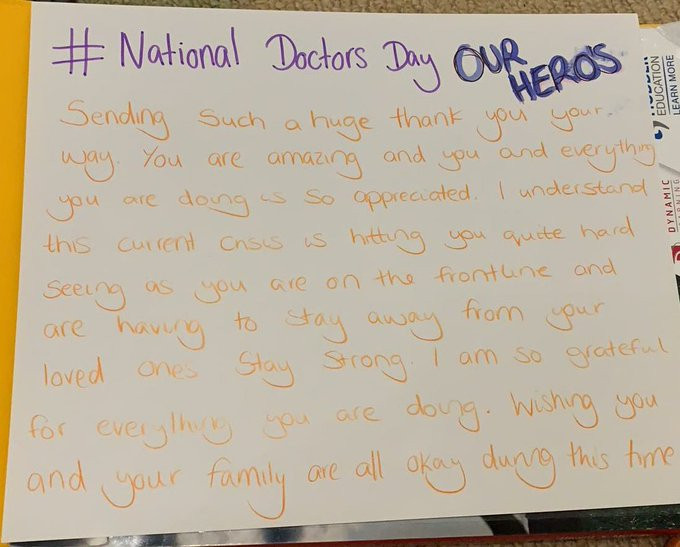 # National Doctors Day OUR HERO'S
Sending such a huge thank you your
way. You are amazing and you and everything
you are doing is so appreciated. I understand
this current crisis is hitting you quite hard
seeing as you are on the frontline and
are having to stay away from your
loved ones Stay Strong. I am so grateful
for everything you are doing. Wishing you
and your family are all okay during this time
EDUCATION
LEARN MORE
DYNAMIC